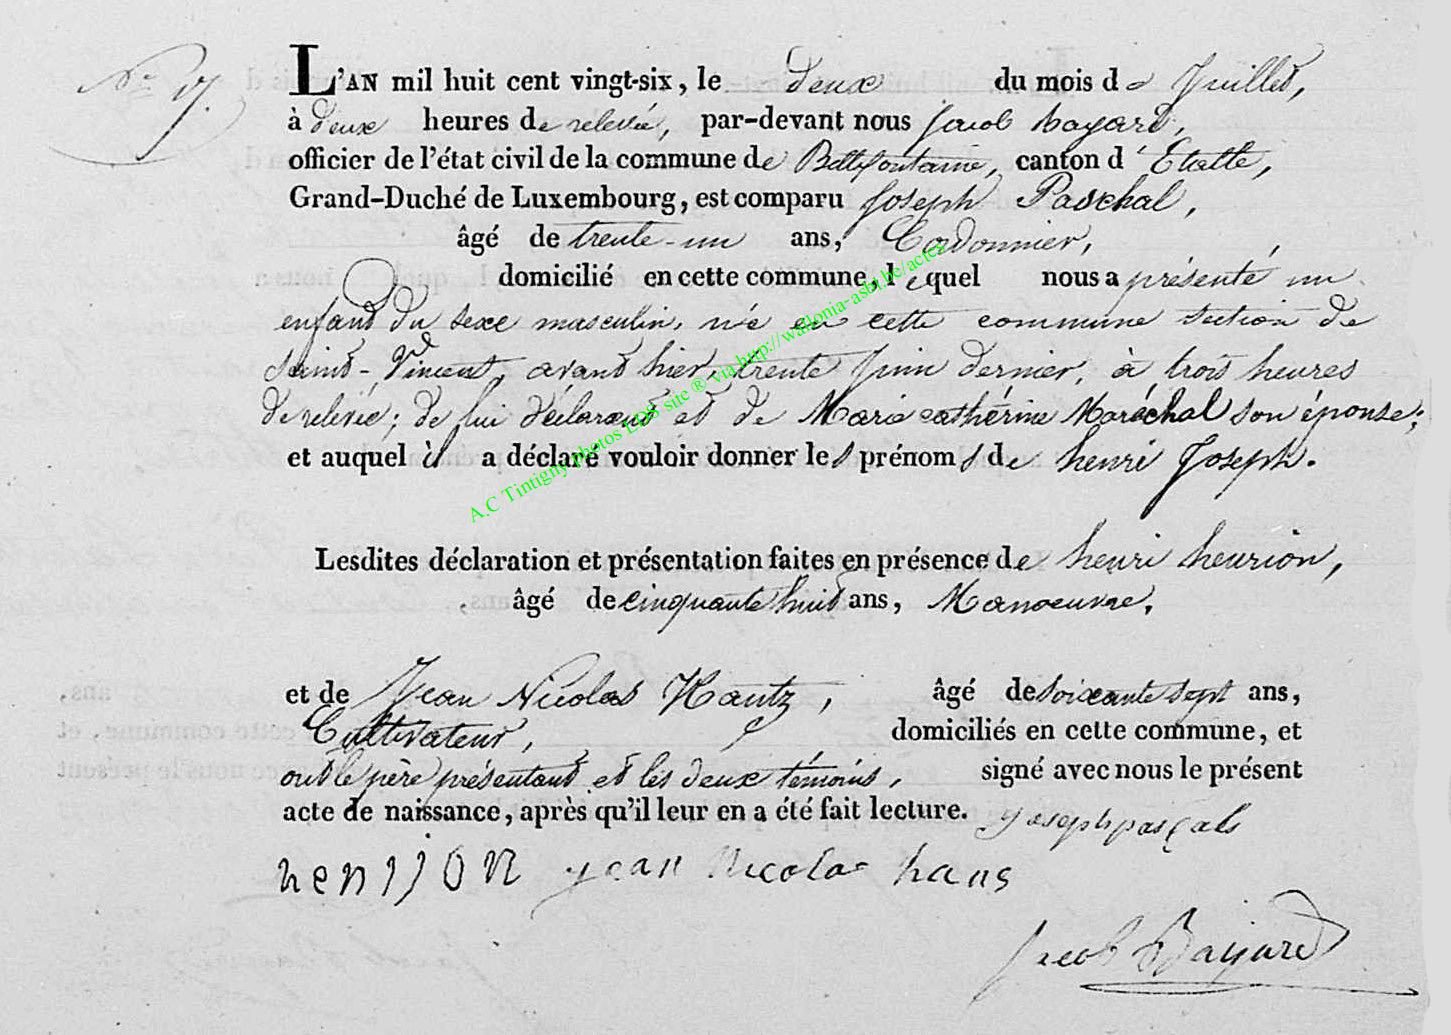 N° 17.
L'AN mil huit cent vingt-six, le deux du mois de Juillet,
à deux heures de relevée, par-devant nous Jacob bayard,
officier de l'état civil de la commune de Bellefontaine, canton d'Etalle,
Grand-Duché de Luxembourg, est comparu Joseph Paschal,
âgé de trente-un ans, Cordonnier,
domicilié en cette commune, lequel nous a présenté un
enfant du sexe masculin, né en cette commune section de
Saint-Vincent, avant hier, trente Juin dernier, à trois heures
de relevée; de lui déclarant et de Marie catherine Maréchal son épouse;
et auquel il a déclaré vouloir donner les prénoms de henri Joseph.
Lesdites déclaration et présentation faites en présence de henri henrion,
âgé de cinquante huit ans, Manoeuvre,
et de Jean Nicolas Hautz, âgé de soixante sept ans,
Cultivateur, domiciliés en cette commune, et
ont le père présentant et les deux témoins, signé avec nous le présent
acte de naissance, après qu'il leur en a été fait lecture. yoseph pasçals
henrion jean Nicolas haus
Jacob Bayard
A.C Tintigny photos LDS site ® via http://wallonia-asbl.be/actes